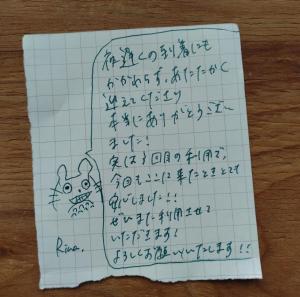 夜遅くの到着にも
かかわらず、あたたかく
迎えてくださり
本当にありがとうござい
ました!
実は3回目の利用で、
今回もここに来たときとても
安心しました!!
ぜひまた利用させて
いただきます!
よろしくお願いいたします!!
Rina.